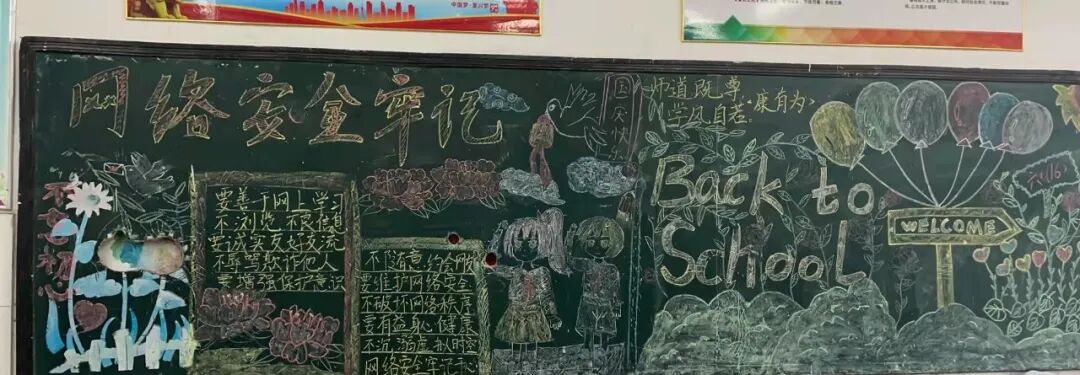 中国梦·复兴梦
网络安全牢记
不忘初心
要善于网上学习
不浏览不良信息
要诚实友好交流
不辱骂欺诈他人
要增强保护意识
不随意约会网友
要维护网络安全
不破坏网络秩序
要有益身心健康
不沉溺虚拟时空
网络安全牢记于心
国庆快
师道既尊
学风自若。康有为
Back to
School
WELCOME
六(16)